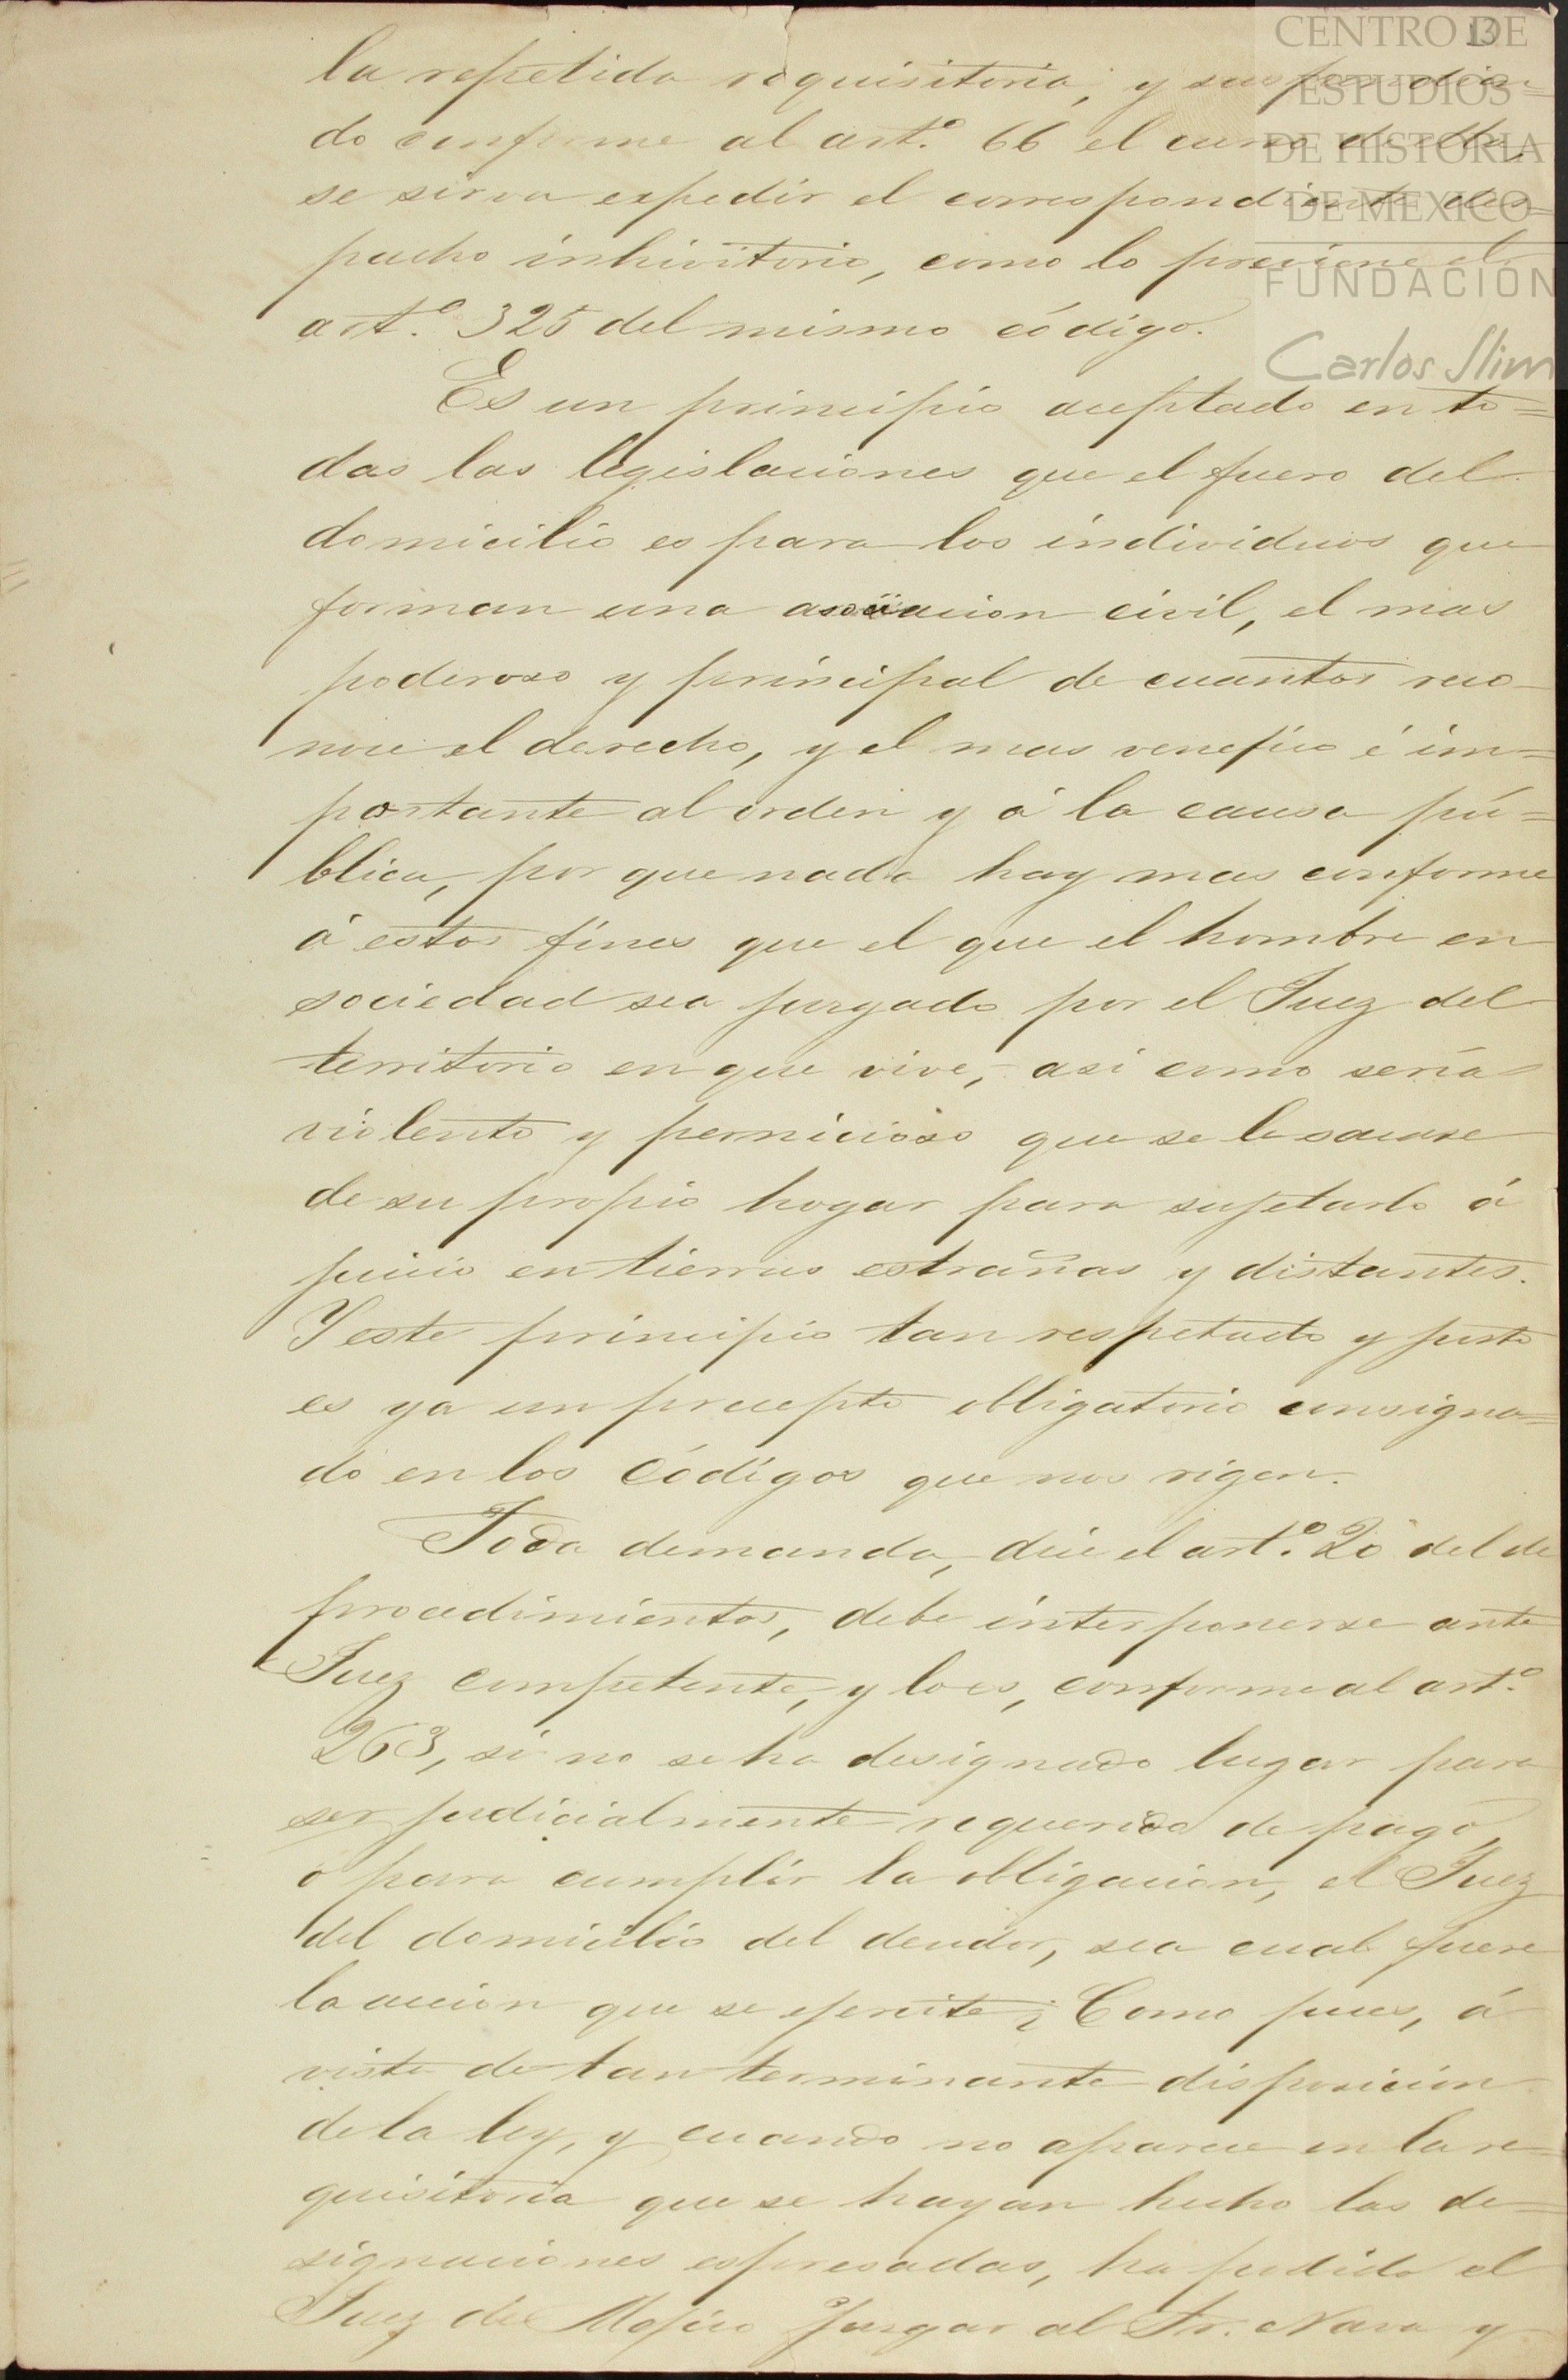 13
CENTRO DE
ESTUDIOS
DE HISTORIA
DE MEXICO
FUNDACIÓN
Carlos Slim
la repetida requisitoria, y suspendien=
do conforme al art.º 66 el curso de ella,
se sirva expedir el correspondiente des=
pacho inhivitorio, como lo previene el
art.º 325 del mismo código.
Es un principio aceptado en to=
das las legislaciones que el fuero del
domicilio es para los individuos que
forman una asociacion civil, el mas
poderoso y principal de cuantos reco-
noce el derecho, y el mas venefico é im=
portante al orden y á la causa pú=
blica, por que nada hay mas conforme
á estos fines que el que el hombre en
sociedad sea juzgado por el Juez del
territorio en que vive, asi como sería
violento y pernicioso que se le sacase
de su propio hogar para sujetarlo á
juicio en tierras estrañas y distantes.
Y este principio tan respetado y justo
es ya un precepto obligatorio consigna=
do en los Códigos que nos rigen.
Toda demanda, dice el art.º 20 del de
procedimientos, debe interponerse ante
Juez competente, y lo es, conforme al art.º
263, si no se ha designado lugar para
ser judicialmente requerido de pago,
o para cumplir la obligacion, el Juez
del domicilio del deudor, sea cual fuere
la accion que se ejercite ¿Como pues, á
vista de tan terminante disposicion
de la ley, y cuando no aparece en la re-
quisitoria que se hayan hecho las de=
signaciones espresadas, ha podido el
Juez de Mejico juzgar al Sr. Nava y